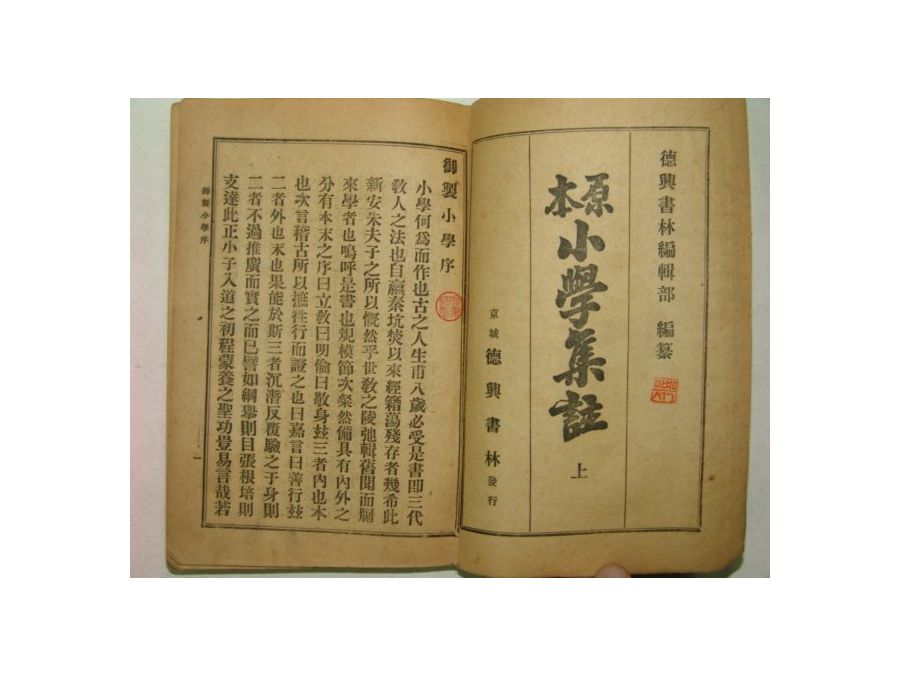 德興書林編輯部 編纂
原本
小學集註 上
京城 德興書林 發行
御製小學序
小學何爲而作也古之人生甫八歲必受是書卽三代
敎人之法也自嬴秦坑焚以來經籍蕩殘存者幾希此
新安朱夫子之所以慨然乎世敎之陵弛輯舊聞而牖
來學者也嗚呼是書也規模節次粲然備具有內外之
分有本末之序曰立敎曰明倫曰敬身玆三者內也本
也次言稽古所以摭徃行而證之也曰嘉言曰善行玆
二者外也末也果能於斯三者沉潛反覆驗之于身則
二者不過推廣而實之而已譬如綱擧則目張根培則
支達此正小子入道之初程蒙養之聖功豈易言哉若
御製小學序
一